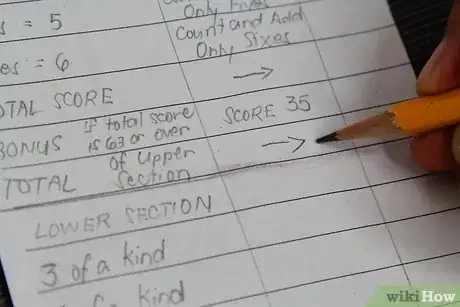 Only Fives
s = 5
Count and Add
Only Sixes
es = 6
OTAL SCORE →
BONUS If total score is 63 or over SCORE 35
TOTAL of Upper Section →
LOWER SECTION
3 of a kind
of a kind
wikiHow